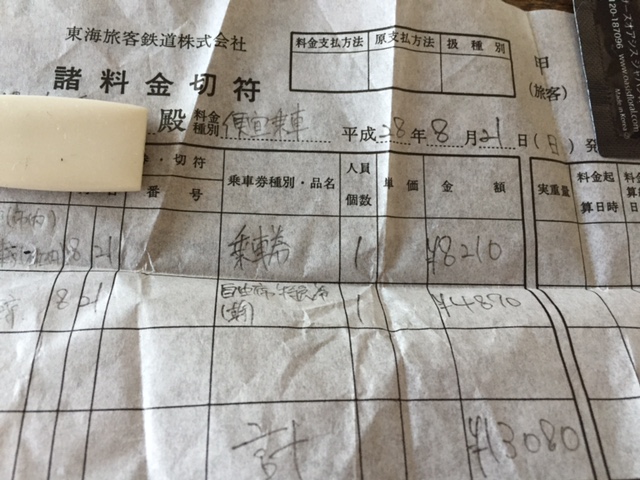 東海旅客鉄道株式会社
料金支払方法 原支払方法 扱種別
甲
(旅客)
諸料金切符
殿 料金種別 便宜乗車 平成28年8月21日(日)発
・切符
番号
乗車券種別・品名
人員
個数
単価
金額
実重量
料金起
算日時
8 21 乗車券 1 ¥8210
8 21 自由席特急券 1 ¥4870
計 ¥13080
120-187096
Made in Korea